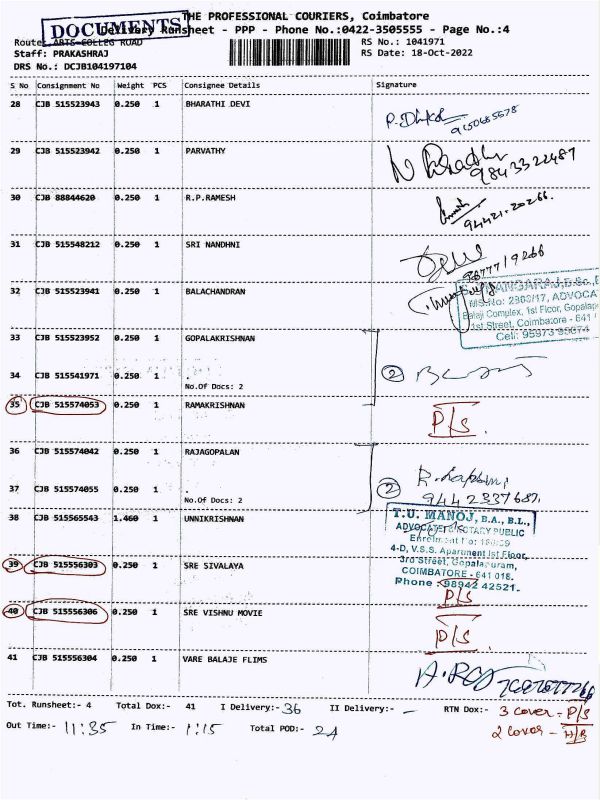 DOCUMENTS
THE PROFESSIONAL COURIERS, Coimbatore
Delivery Runsheet - PPP - Phone No.:0422-3505555 - Page No.:4
Route: ARTS COLLEG ROAD
RS No.: 1041971
Staff: PRAKASHRAJ
RS Date: 18-Oct-2022
DRS No.: DCJB104197104
S No Consignment No Weight PCS Consignee Details Signature
28 CJB 515523943 0.250 1 BHARATHI DEVI
9150685678
29 CJB 515523942 0.250 1 PARVATHY
9843322487
30 CJB 88844620 0.250 1 R.P.RAMESH
94421-20266.
31 CJB 515548212 0.250 1 SRI NANDHNI
32 CJB 515523941 0.250 1 BALACHANDRAN
MS.No: 2903/17, ADVOCAT
Balaji Complex, 1st Floor, Gopalap
1st Street, Coimbatore - 641
Cell: 95973 95674
33 CJB 515523952 0.250 1 GOPALAKRISHNAN
34 CJB 515541971 0.250 1 .
No.Of Docs: 2
2
35 CJB 515574053 0.250 1 RAMAKRISHNAN
P/S
36 CJB 515574042 0.250 1 RAJAGOPALAN
37 CJB 515574055 0.250 1 .
No.Of Docs: 2
2
9442337687
38 CJB 515565543 1.460 1 UNNIKRISHNAN
T.U. MANOJ, B.A., B.L.,
ADVOCATE & NOTARY PUBLIC
4-D, V.S.S. Apartment Ist Floor,
3rd Street, Gopalapuram,
COIMBATORE - 641 018.
Phone : 98942 42521.
39 CJB 515556303 0.250 1 SRE SIVALAYA
P/S
40 CJB 515556306 0.250 1 SRE VISHNU MOVIE
P/S
41 CJB 515556304 0.250 1 VARE BALAJE FLIMS
Tot. Runsheet:- 4 Total Dox:- 41 I Delivery:- 36 II Delivery:- - RTN Dox:- 3 cover - P/S
2 cover -
Out Time:- 11:35 In Time:- 1:15 Total POD:- 24